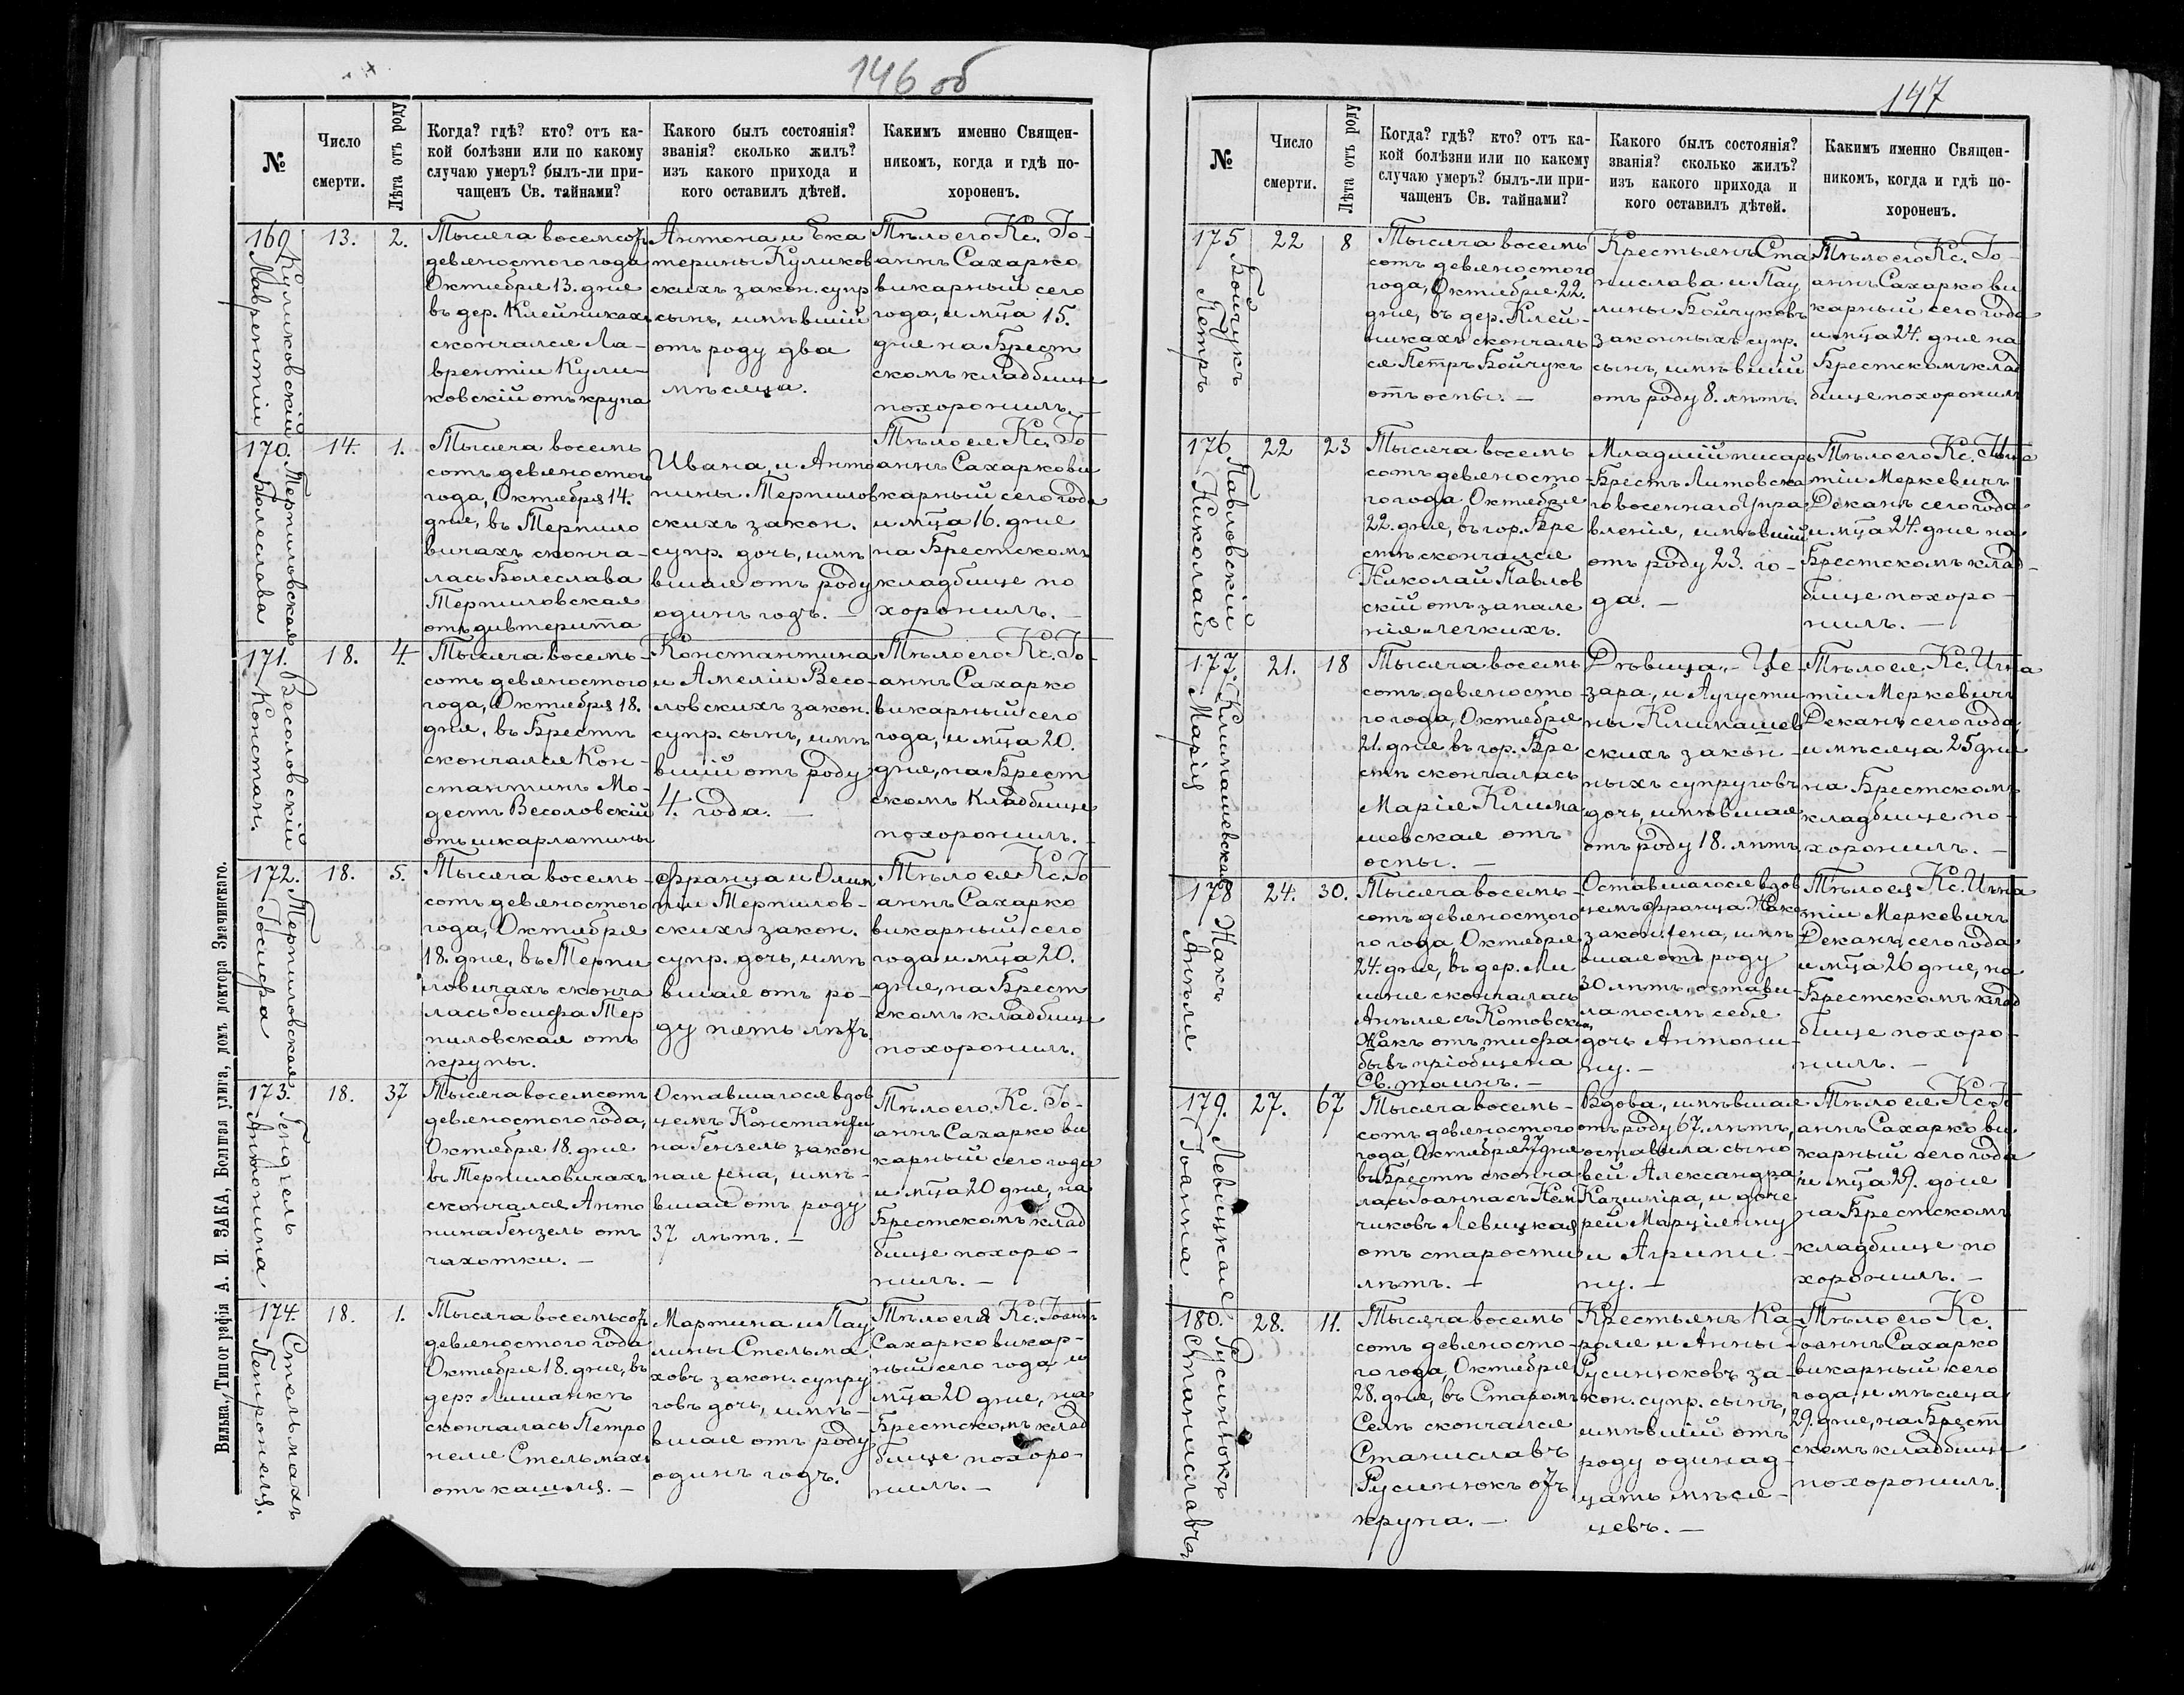 146 об
№
Число
смерти.
Лѣта отъ роду
Когда? гдѣ? кто? отъ ка-
кой болѣзни или по какому
случаю умеръ? былъ-ли при-
чащенъ Св. тайнами?
Какого былъ состоянія?
званія? сколько жилъ?
изъ какого прихода и
кого оставилъ дѣтей.
Какимъ именно Священ-
никомъ, когда и гдѣ по-
хороненъ.
169
Куликовскій
Лаврентій
13.
2.
Тысяча восемсотъ
девяностого года
Октября 13. дня
въ дер. Клейникахъ
скончался Ла-
врентій Кули-
ковскій отъ крупа
Антона и Ека
терины Куликов
скихъ закон. супр
сынъ, имѣвшій
отъ роду два
мѣсяца.
Тѣло его Кс. Іо-
аннъ Сахарко
викарный сего
года, и мца 15.
дня на Брест
скомъ кладбище
похоронилъ.
170.
Терпиловская
Болеслава
14.
1.
Тысяча восемь
сотъ девяностого
года, Октября 14.
дня, въ Терпило
вичахъ сконча-
лась Болеслава
Терпиловская
отъ дивтерита
Ивана, и Анто
нины Терпилов
скихъ закон.
супр. дочь, имѣ
вшая отъ роду
одинъ годъ. —
Тѣло ея Кс. Іо
аннъ Сахарко ви
карный сего года
и мца 16. дня
на Брестскомъ
кладбище по
хоронилъ. —
171.
Весоловскій
Констан.
18.
4.
Тысяча восемь-
сотъ девяностого
года, Октября 18.
дня, въ Брестѣ
скончался Кон-
стантинъ Мо-
дестъ Весоловскій
отъ шкарлатины
Константина
и Амеліи Весо-
ловскихъ закон.
супр. сынъ, имѣ
вшій отъ роду
4. года. —
Тѣло его Кс. Іо-
аннъ Сахарко
викарный сего
года, и мца 20.
дня, на Брест
скомъ кладбище
похоронилъ. —
172.
Терпиловская
Іосифа
18.
5.
Тысяча восемь-
сотъ девяностого
года, Октября
18. дня, въ Терпи
ловичахъ сконча
лась Іосифа Тер
пиловская отъ
крупы.
Франца и Олим
піи Терпилов-
скихъ закон.
супр. дочь, имѣ
вшая отъ ро-
ду пять лѣтъ.
Тѣло ея Кс. Іо
аннъ Сахарко
викарный сего
года и мца 20.
дня, на Брест
скомъ кладбище
похоронилъ.
173.
Гендзель
Антонина
18.
37
Тысяча восемсотъ
девяностого года,
Октября 18. дня
въ Терпиловичахъ
скончался Анто
нина Гензель отъ
чахотки. —
Оставшагося вдов
цемъ Константи
на Гензель закон
ная жена, имѣ-
вшая отъ роду
37 лѣтъ. —
Тѣло его Кс. Іо-
аннъ Сахарко ви
карный сего года
и мца 20 дня, на
Брестскомъ клад
бище похоро-
нилъ. —
174.
Стельмахъ
Петронеля.
18.
1.
Тысяча восемьсотъ
девяностого года
Октября 18. дня, въ
дер. Лишанкѣ
скончалась Петро
неля Стельмахъ
отъ кашля. —
Мартина и Пау
лины Стельма
ховъ закон. супру
говъ дочь, имѣ-
вшая отъ роду
одинъ годъ.
Тѣло ея Кс. Іоаннъ
Сахарко викар-
ный сего года и
мца 20 дня, на
Брестскомъ клад
бище похоро-
нилъ. —
Вильна, Типографія А. И. ЗАКА, Большая улица, домъ доктора Змачинскаго.
147
№
Число
смерти.
Лѣта отъ роду
Когда? гдѣ? кто? отъ ка-
кой болѣзни или по какому
случаю умеръ? былъ-ли при-
чащенъ Св. тайнами?
Какого былъ состоянія?
званія? сколько жилъ?
изъ какого прихода и
кого оставилъ дѣтей.
Какимъ именно Священ-
никомъ, когда и гдѣ по-
хороненъ.
175
Бойчукъ
Петръ
22
8
Тысяча восемь
сотъ девяностого
года, Октября 22.
дня, въ дер. Клей-
никахъ скончаль
ся Петръ Бойчукъ
отъ оспы. —
Крестьянъ Ста
нислава и Пау
лины Бойчуковъ
законныхъ супр.
сынъ, имѣвшій
отъ роду 8. лѣтъ.
Тѣло его Кс. Іо-
аннъ Сахарко ви
карный сего года
и мца 24. дня на
Брестскомъ клад
бище похоронилъ
176
Павловскій
Николай
22
23
Тысяча восемь
сотъ девяносто-
го года Октября
22. дня, въ гор. Бре
стѣ скончался
Николай Павлов
скій отъ запале
нія легкихъ.
Младшій писарь
Брестъ Литовска
го военнаго Упра
вленія, имѣвшій
отъ роду 23. го-
да. —
Тѣло его Кс. Игна
тій Меркевичъ
Деканъ сего года
и мца 24. дня на
Брестскомъ клад-
бище похоро-
нилъ. —
177.
Климашевская
Марія
21.
18
Тысяча восемь
сотъ девяносто
го года, Октября
21. дня въ гор. Бре
стѣ скончалась
Марія Клима
шевская отъ
оспы. —
Дѣвица, — Це-
зара, и Августи
ны Климашев
скихъ закон-
ныхъ супруговъ
дочь, имѣвшая
отъ роду 18. лѣтъ.
Тѣло ея Кс. Игна
тій Меркевичъ
Деканъ сего года
и мѣсяца 25 дня
на Брестскомъ
кладбище по-
хоронилъ. —
178
Жакъ
Анеля
24.
30.
Тысяча восемь-
сотъ девяностого
го года, Октября
24. дня, въ дер. Ми
шне скончалась
Анеля съ Котовски
Жакъ отъ тифа
бывъ пріобщена
Св. таинъ. —
Оставшагося вдов
цемъ Франца Жака
закон. жена, имѣ-
вшая отъ роду
30 лѣтъ, остави-
ла послѣ себя
дочь Антони-
ну. —
Тѣло ея Кс. Игна
тій Меркевичъ
Деканъ, сего года
и мца 26 дня, на
Брестскомъ клад
бище похоро-
нилъ. —
179.
Левицкая
Іоанна
27.
67
Тысяча восемь-
сотъ девяностого
года, Октября 27 дня
въ Брестѣ сконча
лась Іоанна съ Нем
чиковъ Левицкая
отъ старости
лѣтъ. —
Вдова, имѣвшая
отъ роду 67. лѣтъ,
оставила сыно
вей Александра,
Казиміра, и доче
рей Марціянну
и Агрипи-
ну. —
Тѣло ея Кс. Іо
аннъ Сахарко ви
карный сего года
и мца 29. дня
на Брестскомъ
кладбище по
хоронилъ. —
180.
Русинюкъ
Станиславъ
28.
11.
Тысяча восемь
сотъ девяносто-
го года, Октября
28. дня, въ Старомъ
Селѣ скончался
Станиславъ
Русинюкъ отъ
крупа. —
Крестьянъ Ка-
роля и Анны
Русинюковъ за-
кон. супр. сынъ,
имѣвшій отъ
роду одинад-
цать мѣся-
цевъ. —
Тѣло его Кс.
Іоаннъ Сахарко
викарный сего
года, и мѣсяца
29. дня, на Брест
скомъ кладбище
похоронилъ.